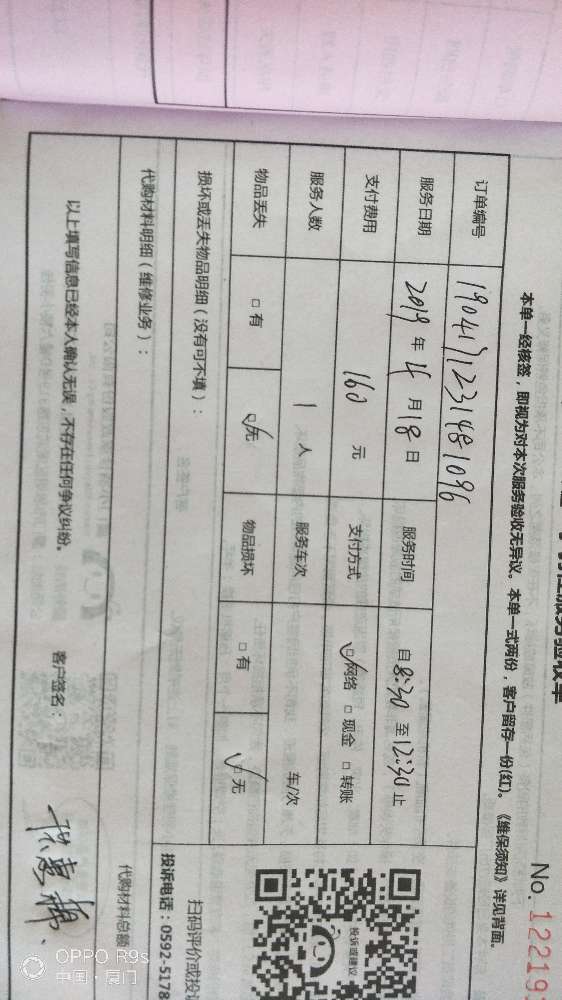 服务验收单
No. 12219
本单一经核签，即视为对本次服务验收无异议。本单一式两份，客户留存一份(红)。《维保须知》详见背面。
订单编号 1904171231481096
服务日期 2019 年 4 月 18 日 服务时间 自 8:30 至 12:30 止
支付费用 160 元 支付方式 ☑ 网络 □ 现金 □ 转账
服务人数 1 人 服务车次 车/次
物品丢失 □ 有 ☑ 无 物品损坏 □ 有 ☑ 无
损坏或丢失物品明细（没有可不填）：
代购材料明细（维修业务）：
代购材料总额
以上填写信息已经本人确认无误，不存在任何争议纠纷。
客户签名：
投诉或建议
扫码评价或投
投诉电话：0592-5178
OPPO R9s
中国·厦门